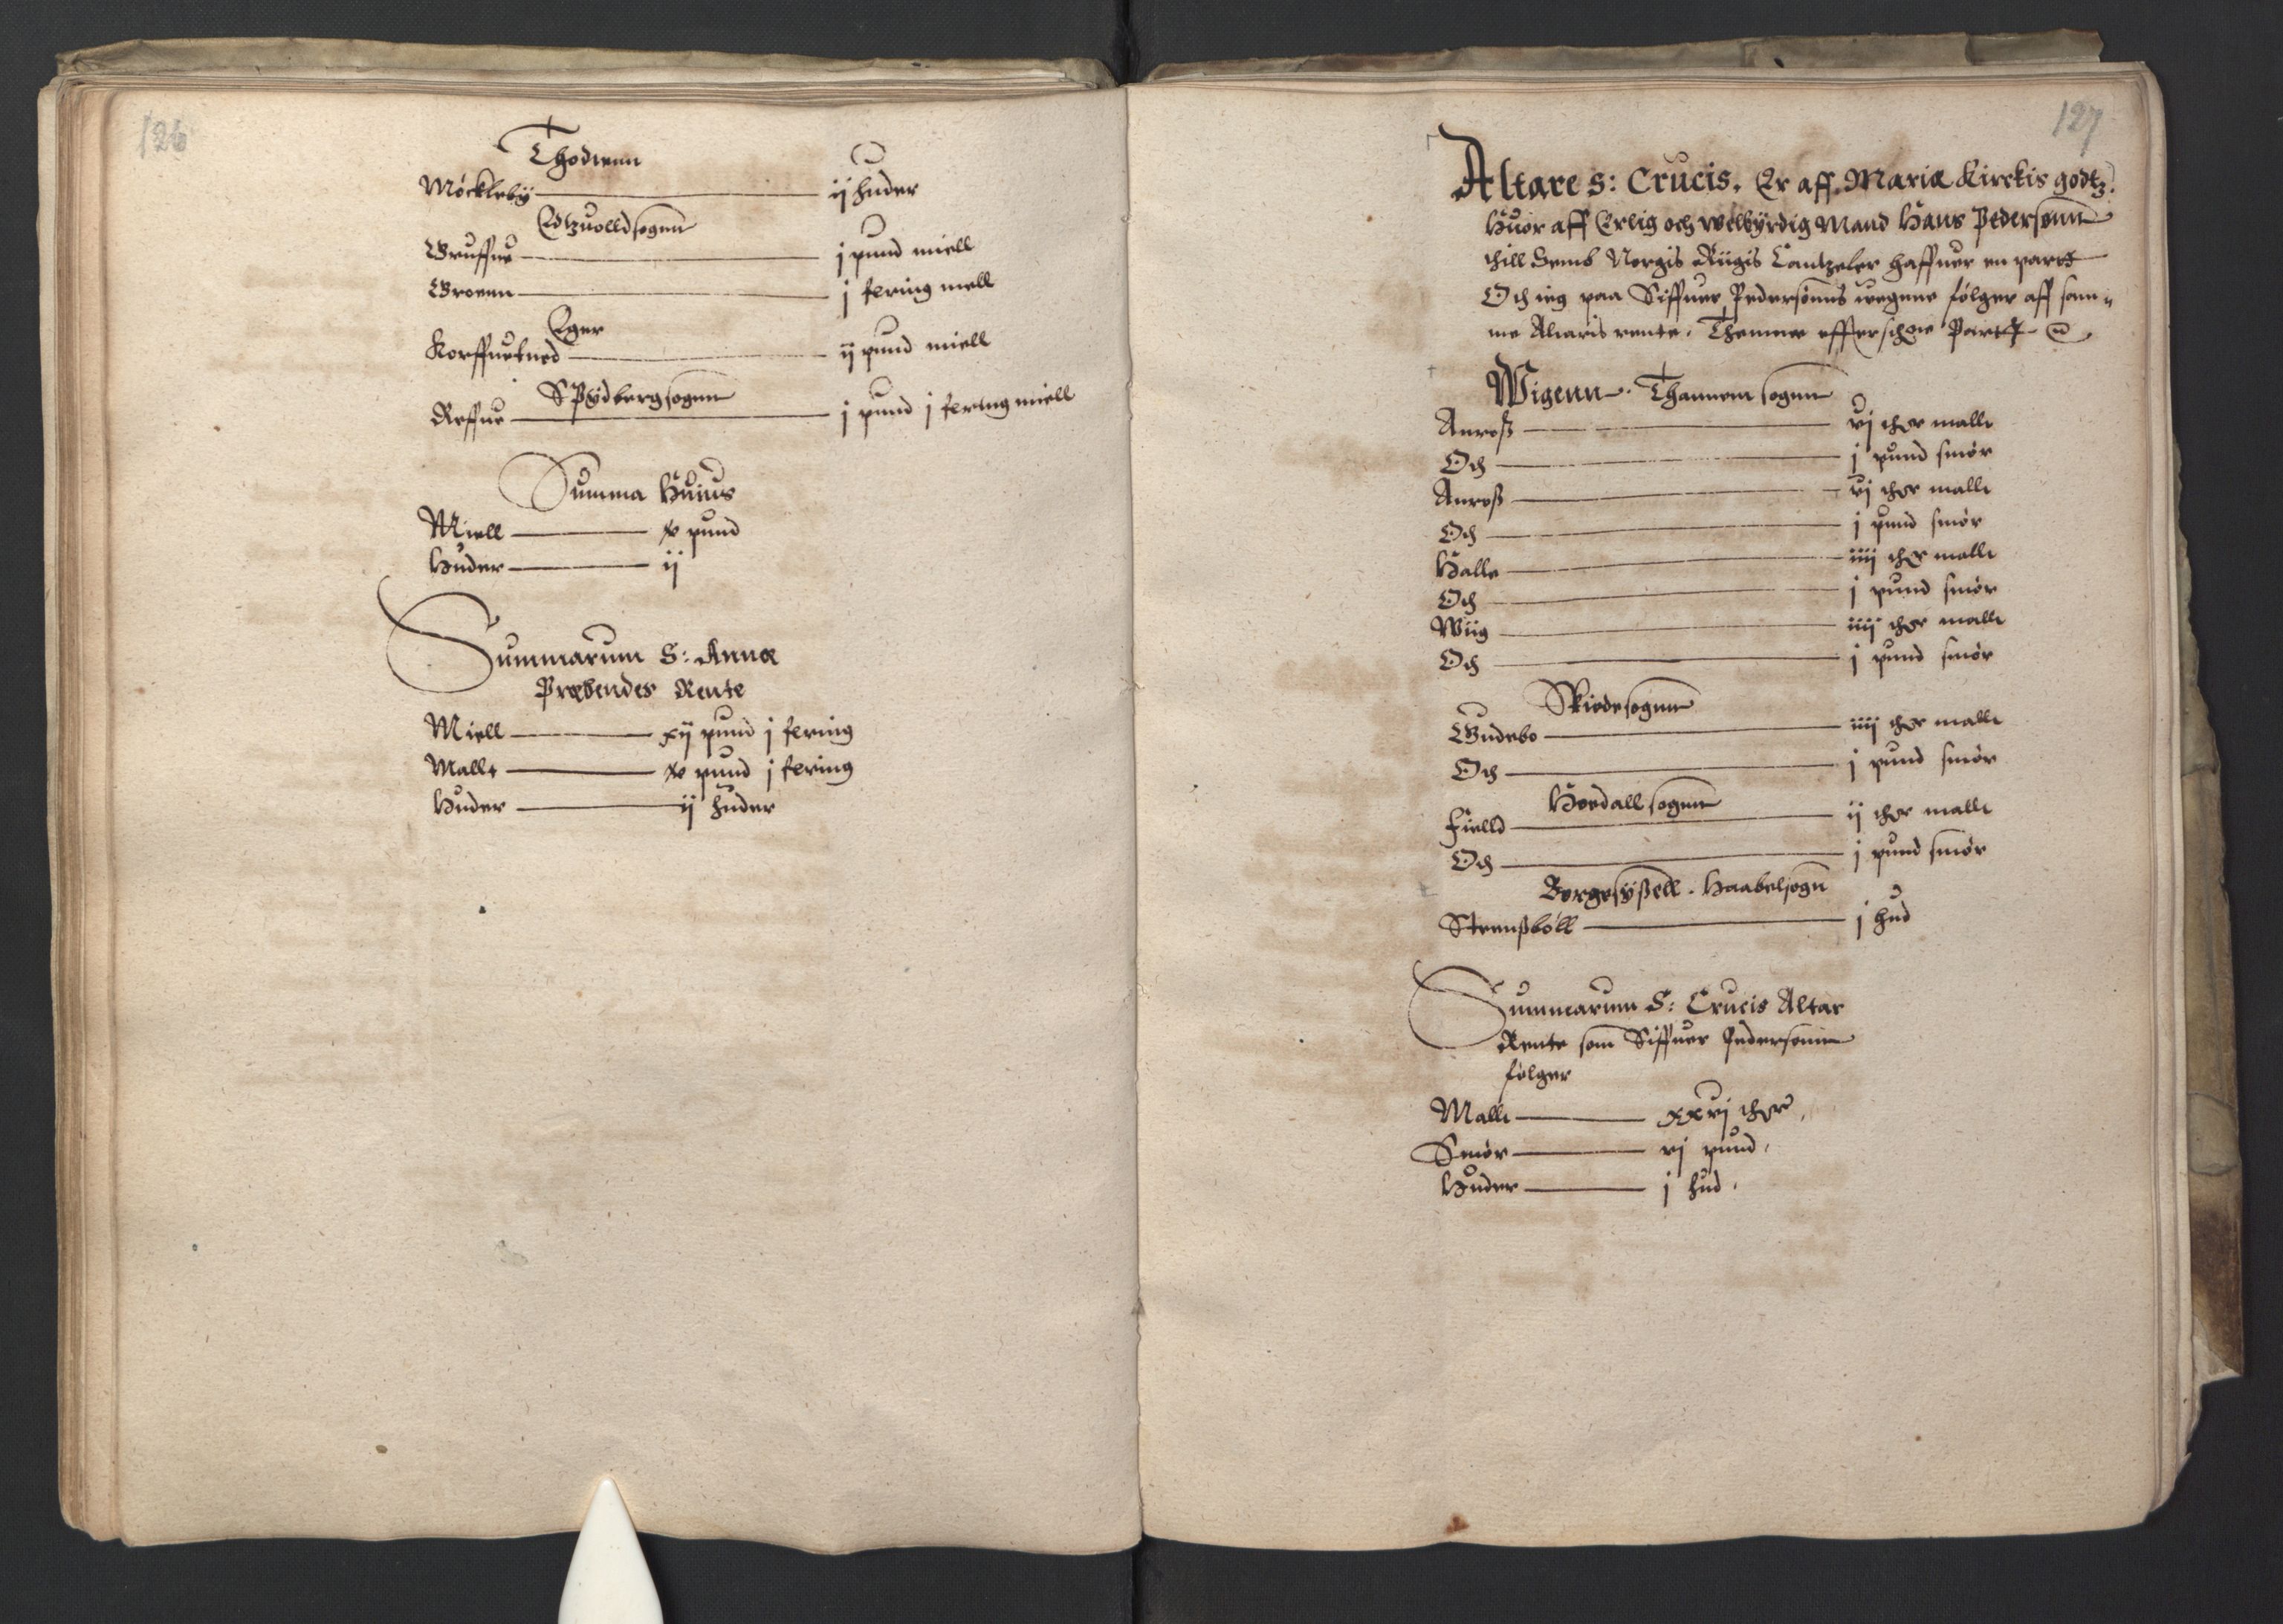 126
Thodienn
Möckleby ij huder
Edtzuolldsognn
Gruffue j pund miell
Groenn j fering mell
Eger
Korffuefued ij pund miell
Spydbergsognn
Reffue j pund j fering miell
Summa Huius
Miell x pund
Huder ij
Summarum S: Annæ
Præbendes Rente
Miell xij pund j fering
Mallt x pund j fering
Huder ij huder
127
Altare S: Crucis. Er aff Mariæ Kirckis godtz.
Huor aff Erlig och welbyrdig Mand Hans Pedersønn
thill Semb Norgis Riigis Cantzeler haffuer en partt
Och ieg paa Siffuer Pedersønns wegene følger aff sam=
me Altaris rente. Thenne effterschne Partt
Wigenn. Thannem sognn
Anroß vj ther malt
Och j pund smör
Anroß vj ther malt
Och j pund smör
Halle iiij ther malt
Och j pund smör
Wiig iiij ther malt
Och j pund smör
Skiedesognn
Gudebo iiij ther malt
Och j pund smör
Hordallsognn
Fielld ij ther malt
Och j pund smör
Borgesyßell. Haabelsogn
Strenßböll j hud
Summarum S: Crucis Altar
Rente som Siffuer Pedersønn
følger
Mallt xxvj ther
Smör vj pund
Huder j hud